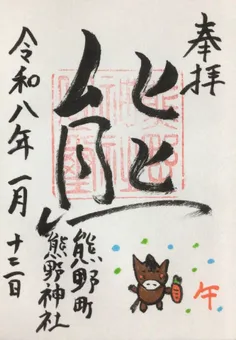 奉拝
熊
熊野町
熊野神社
令和八年一月十三日
午